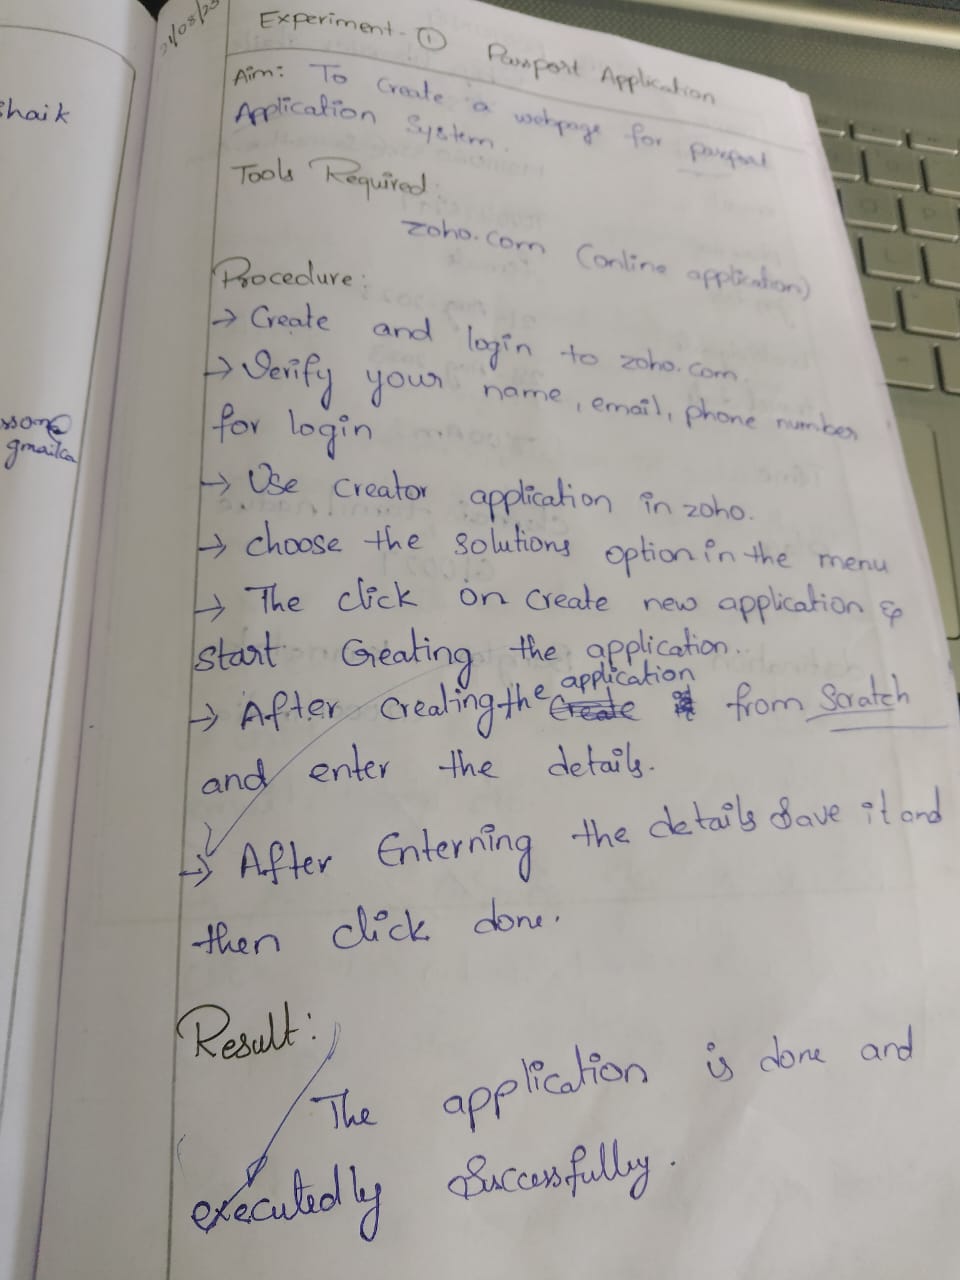 21/08/23
Experiment - ① Passport Application
Aim: To Create a webpage for passport
Application System.
Tools Required:
zoho.com (online application)
Procedure:
→ Create and login to zoho.com.
→ Verify your name, email, phone number
for login
→ Use Creator application in zoho.
→ choose the solutions option in the menu
→ The click on Create new application &
start Creating the application.
→ After creating the application from Scratch
and enter the details.
→ After Enterning the details Save it and
then click done.
Result:
The application is done and
executedly Successfully.
shaik
gmail.co